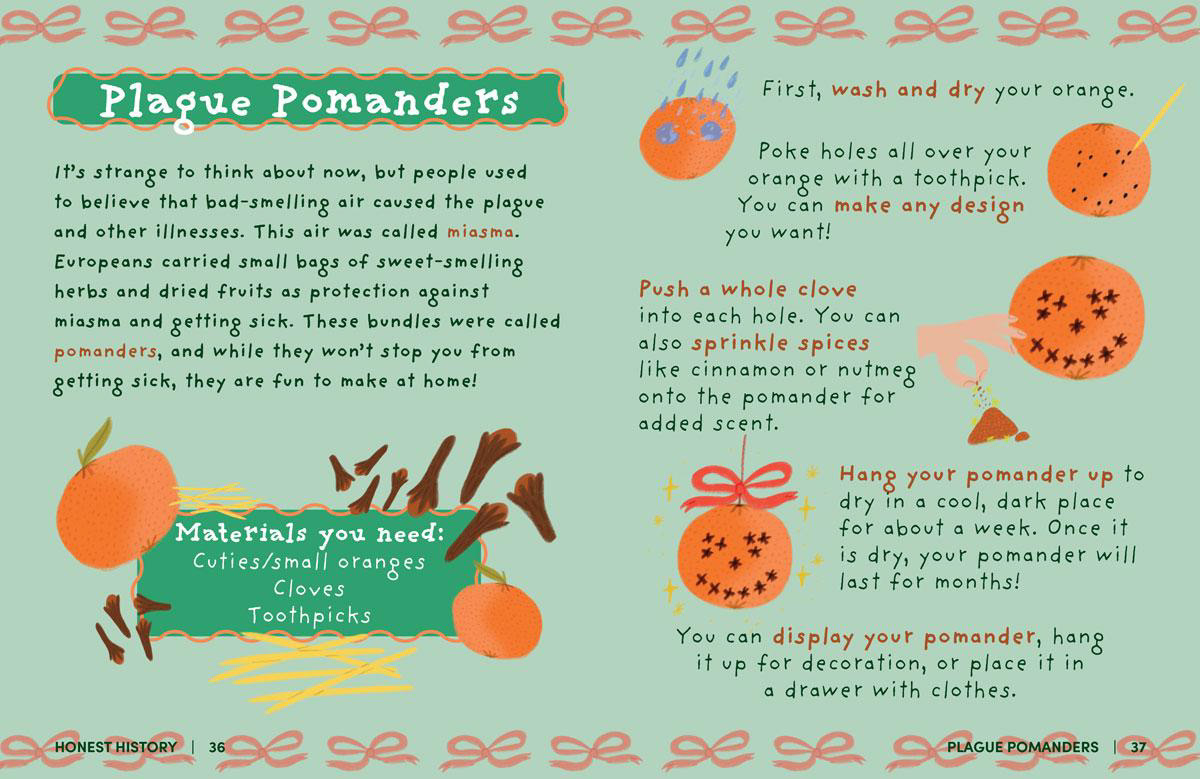 Plague Pomanders
It's strange to think about now, but people used
to believe that bad-smelling air caused the plague
and other illnesses. This air was called miasma.
Europeans carried small bags of sweet-smelling
herbs and dried fruits as protection against
miasma and getting sick. These bundles were called
pomanders, and while they won't stop you from
getting sick, they are fun to make at home!
Materials you need:
Cuties/small oranges
Cloves
Toothpicks
HONEST HISTORY | 36
First, wash and dry your orange.
Poke holes all over your
orange with a toothpick.
You can make any design
you want!
Push a whole clove
into each hole. You can
also sprinkle spices
like cinnamon or nutmeg
onto the pomander for
added scent.
Hang your pomander up to
dry in a cool, dark place
for about a week. Once it
is dry, your pomander will
last for months!
You can display your pomander, hang
it up for decoration, or place it in
a drawer with clothes.
PLAGUE POMANDERS | 37